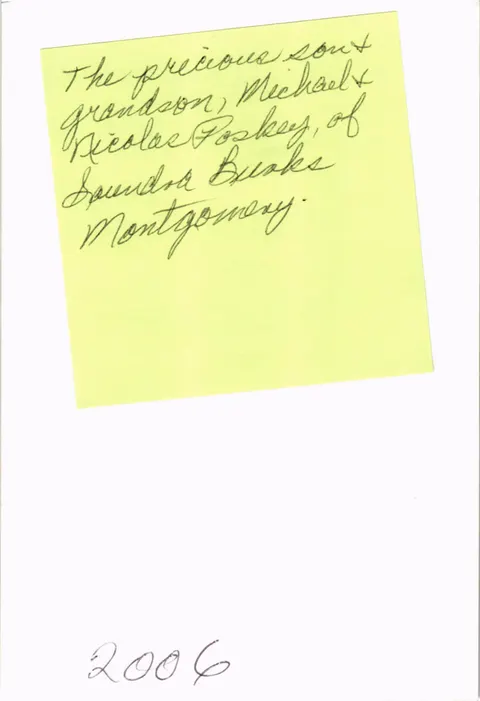 The precious son &
grandson, Michael &
Nicolas Poskey, of
Saundra Burks
Montgomery.
2006